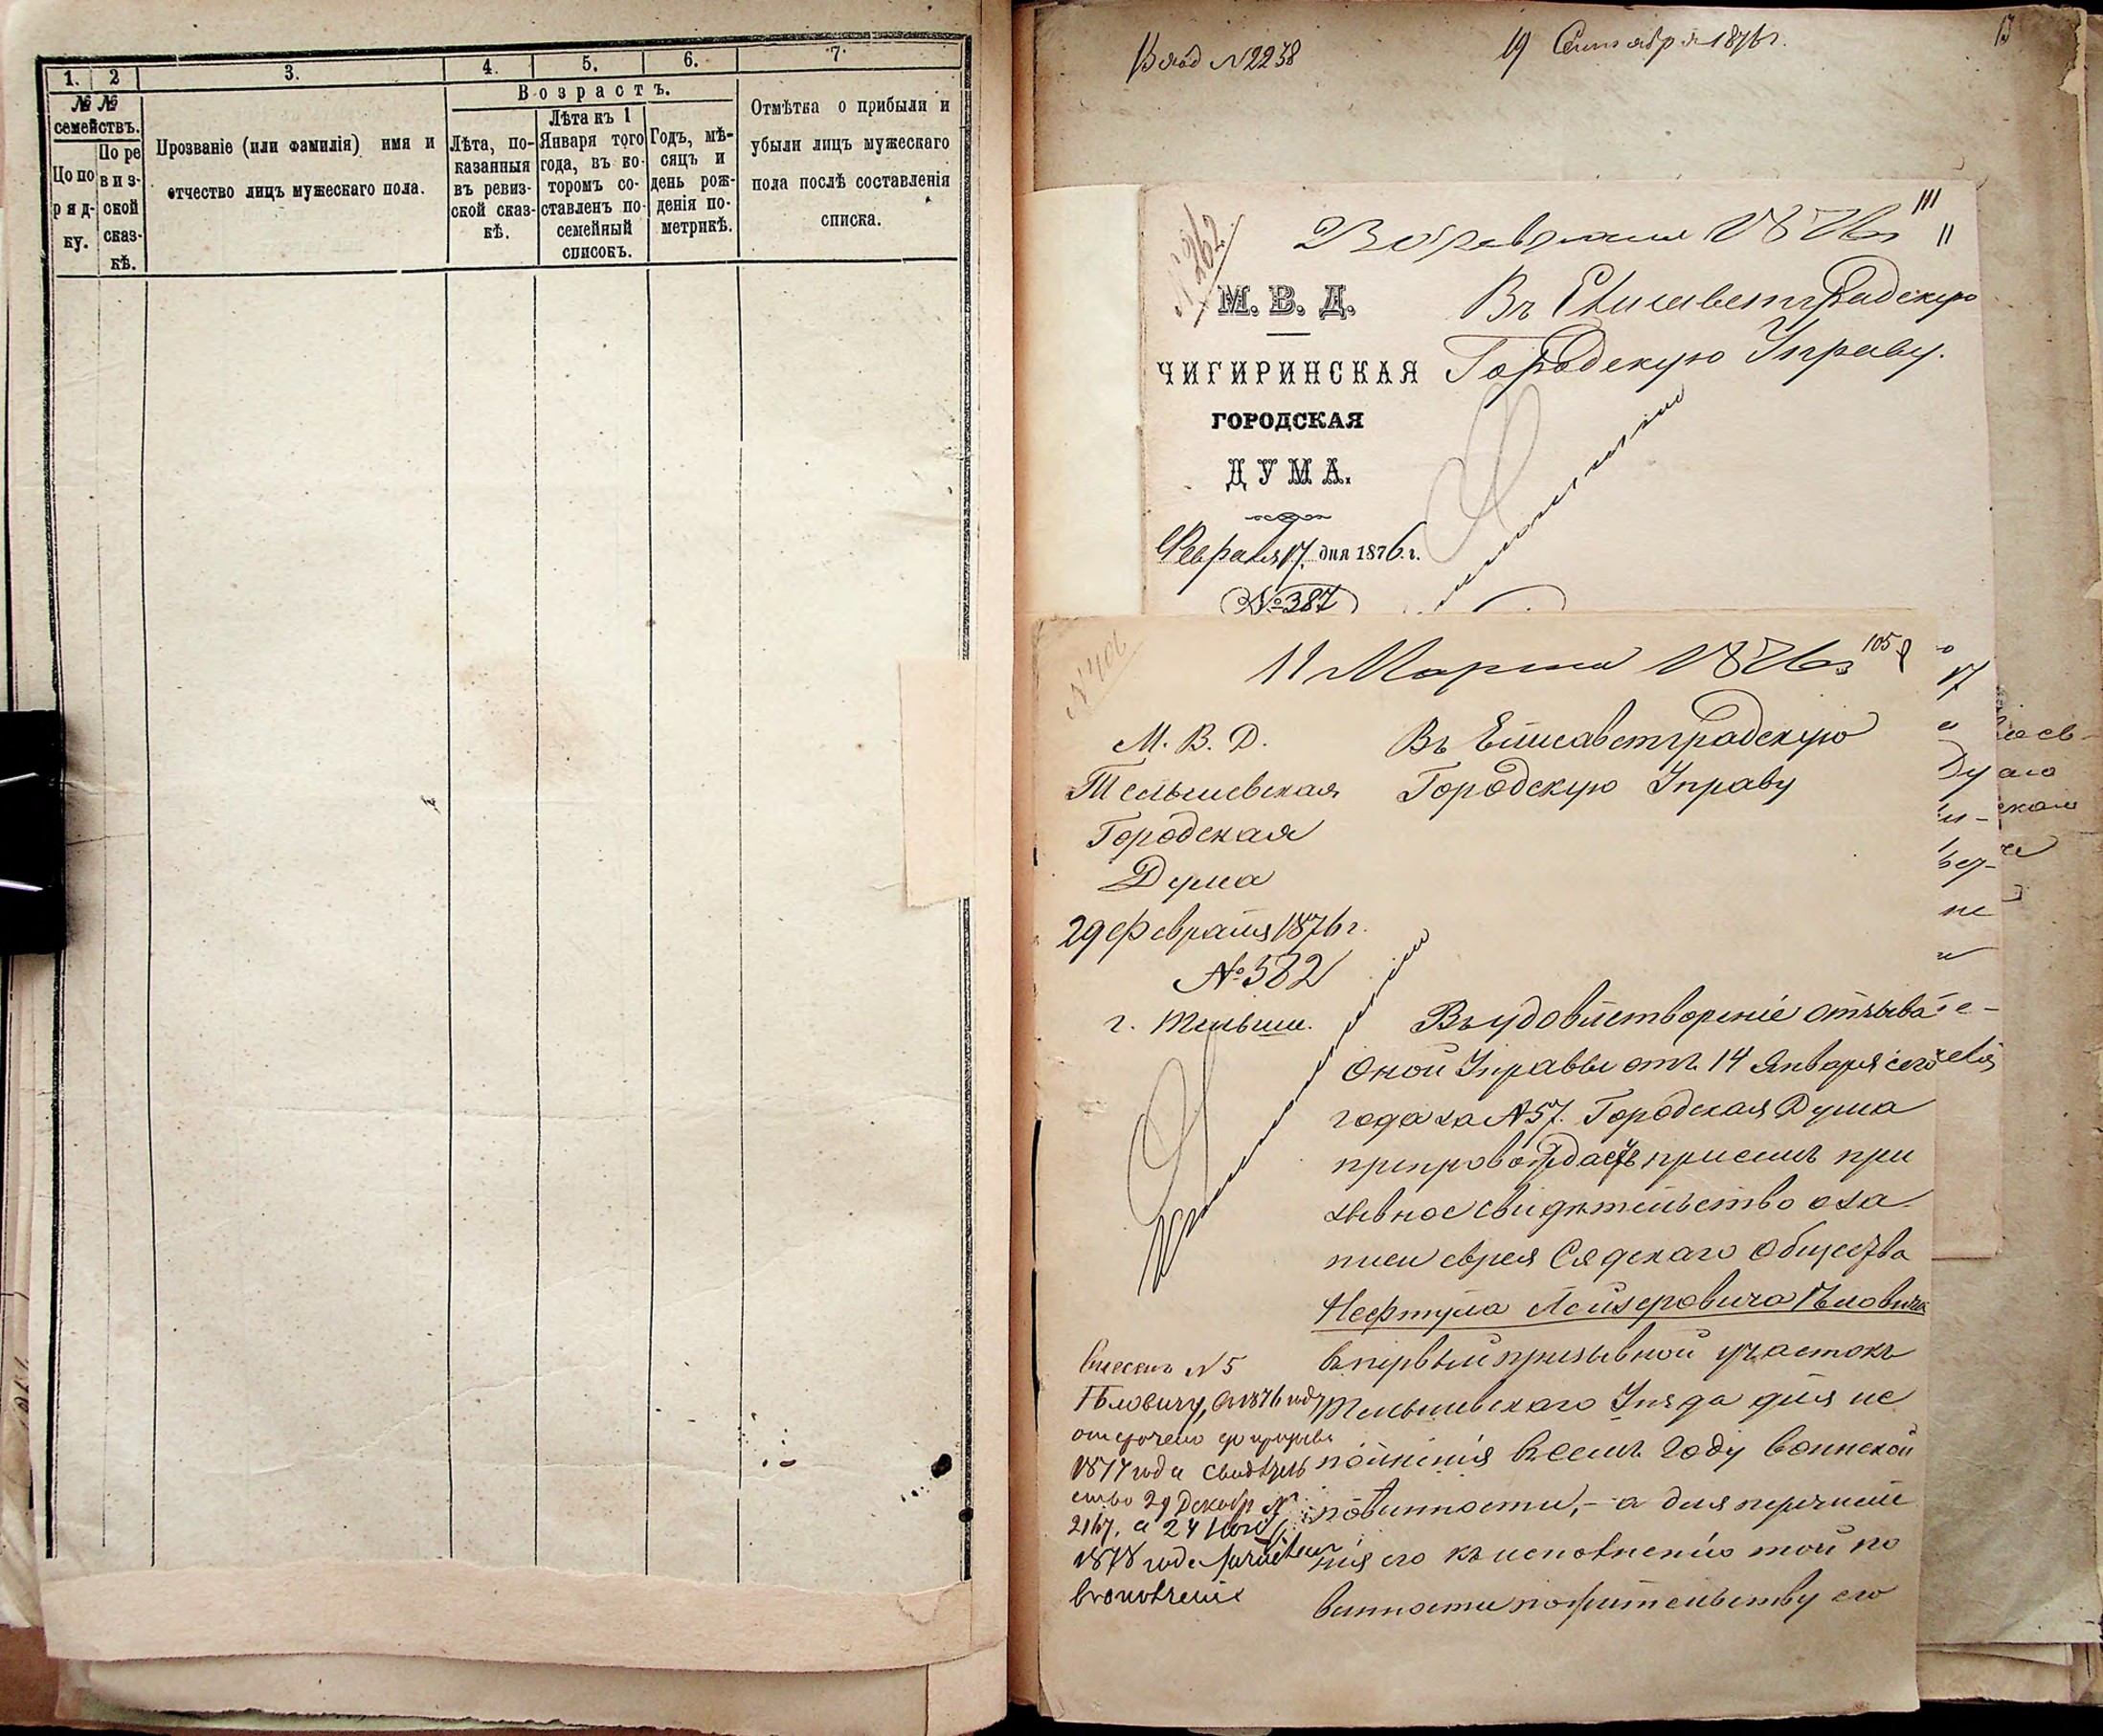 1. 2 3. 4. 5. 6. 7.
№ №
семействъ.
По по
ряд-
ку.
По ре
виз-
ской
сказ-
кѣ.
Прозваніе (или фамилія) имя и
отчество лицъ мужескаго пола.
Возрастъ.
Лѣта, по-
казанныя
въ ревиз-
ской сказ-
кѣ.
Лѣта къ 1
Января того
года, въ ко-
торомъ со-
ставленъ по-
семейный
списокъ.
Годъ, мѣ-
сяцъ и
день рож-
денія по-
метрикѣ.
Отмѣтка о прибыли и
убыли лицъ мужескаго
пола послѣ составленія
списка.
Вход №2238
19 Сентября 1876 г.
13
№ 262
23 февраля 1876 г
111
11
М. В. Д.
ЧИГИРИНСКАЯ
ГОРОДСКАЯ
ДУМА.
Февраля 17 дня 1876 г.
№ 387
Въ Елисаветградскую
Городскую Управу.
№ 406
11 Марта 1876 г
105
М. В. Д.
Тельшевская
Городская
Дума
29 Февраля 1876 г.
№ 582
г. Тельши.
Въ Елисаветградскую
Городскую Управу
Въ удовлетвореніе отзыва
оной Управы отъ 14 Января сего
года за №57. Городская Дума
препровождаетъ при семъ при
зывное свидѣтельство о за
писи еврея Сядскаго Общества
Нефтула Лейзеровича Гѣловича
въ первый призывной участокъ
Тельшевскаго Уѣзда для ис
полненія въ семъ году воинской
повинности, - а для перечисле
нія его къ исполненію той по
винности по жительству его
Списокъ №5
Гѣловичу, въ 1876 году
отсрочено до призыва
1877 года свидѣтель
ство 29 Декабр №
2167, а 24 Нояб
1878 года зачисленъ
въ ополченіе